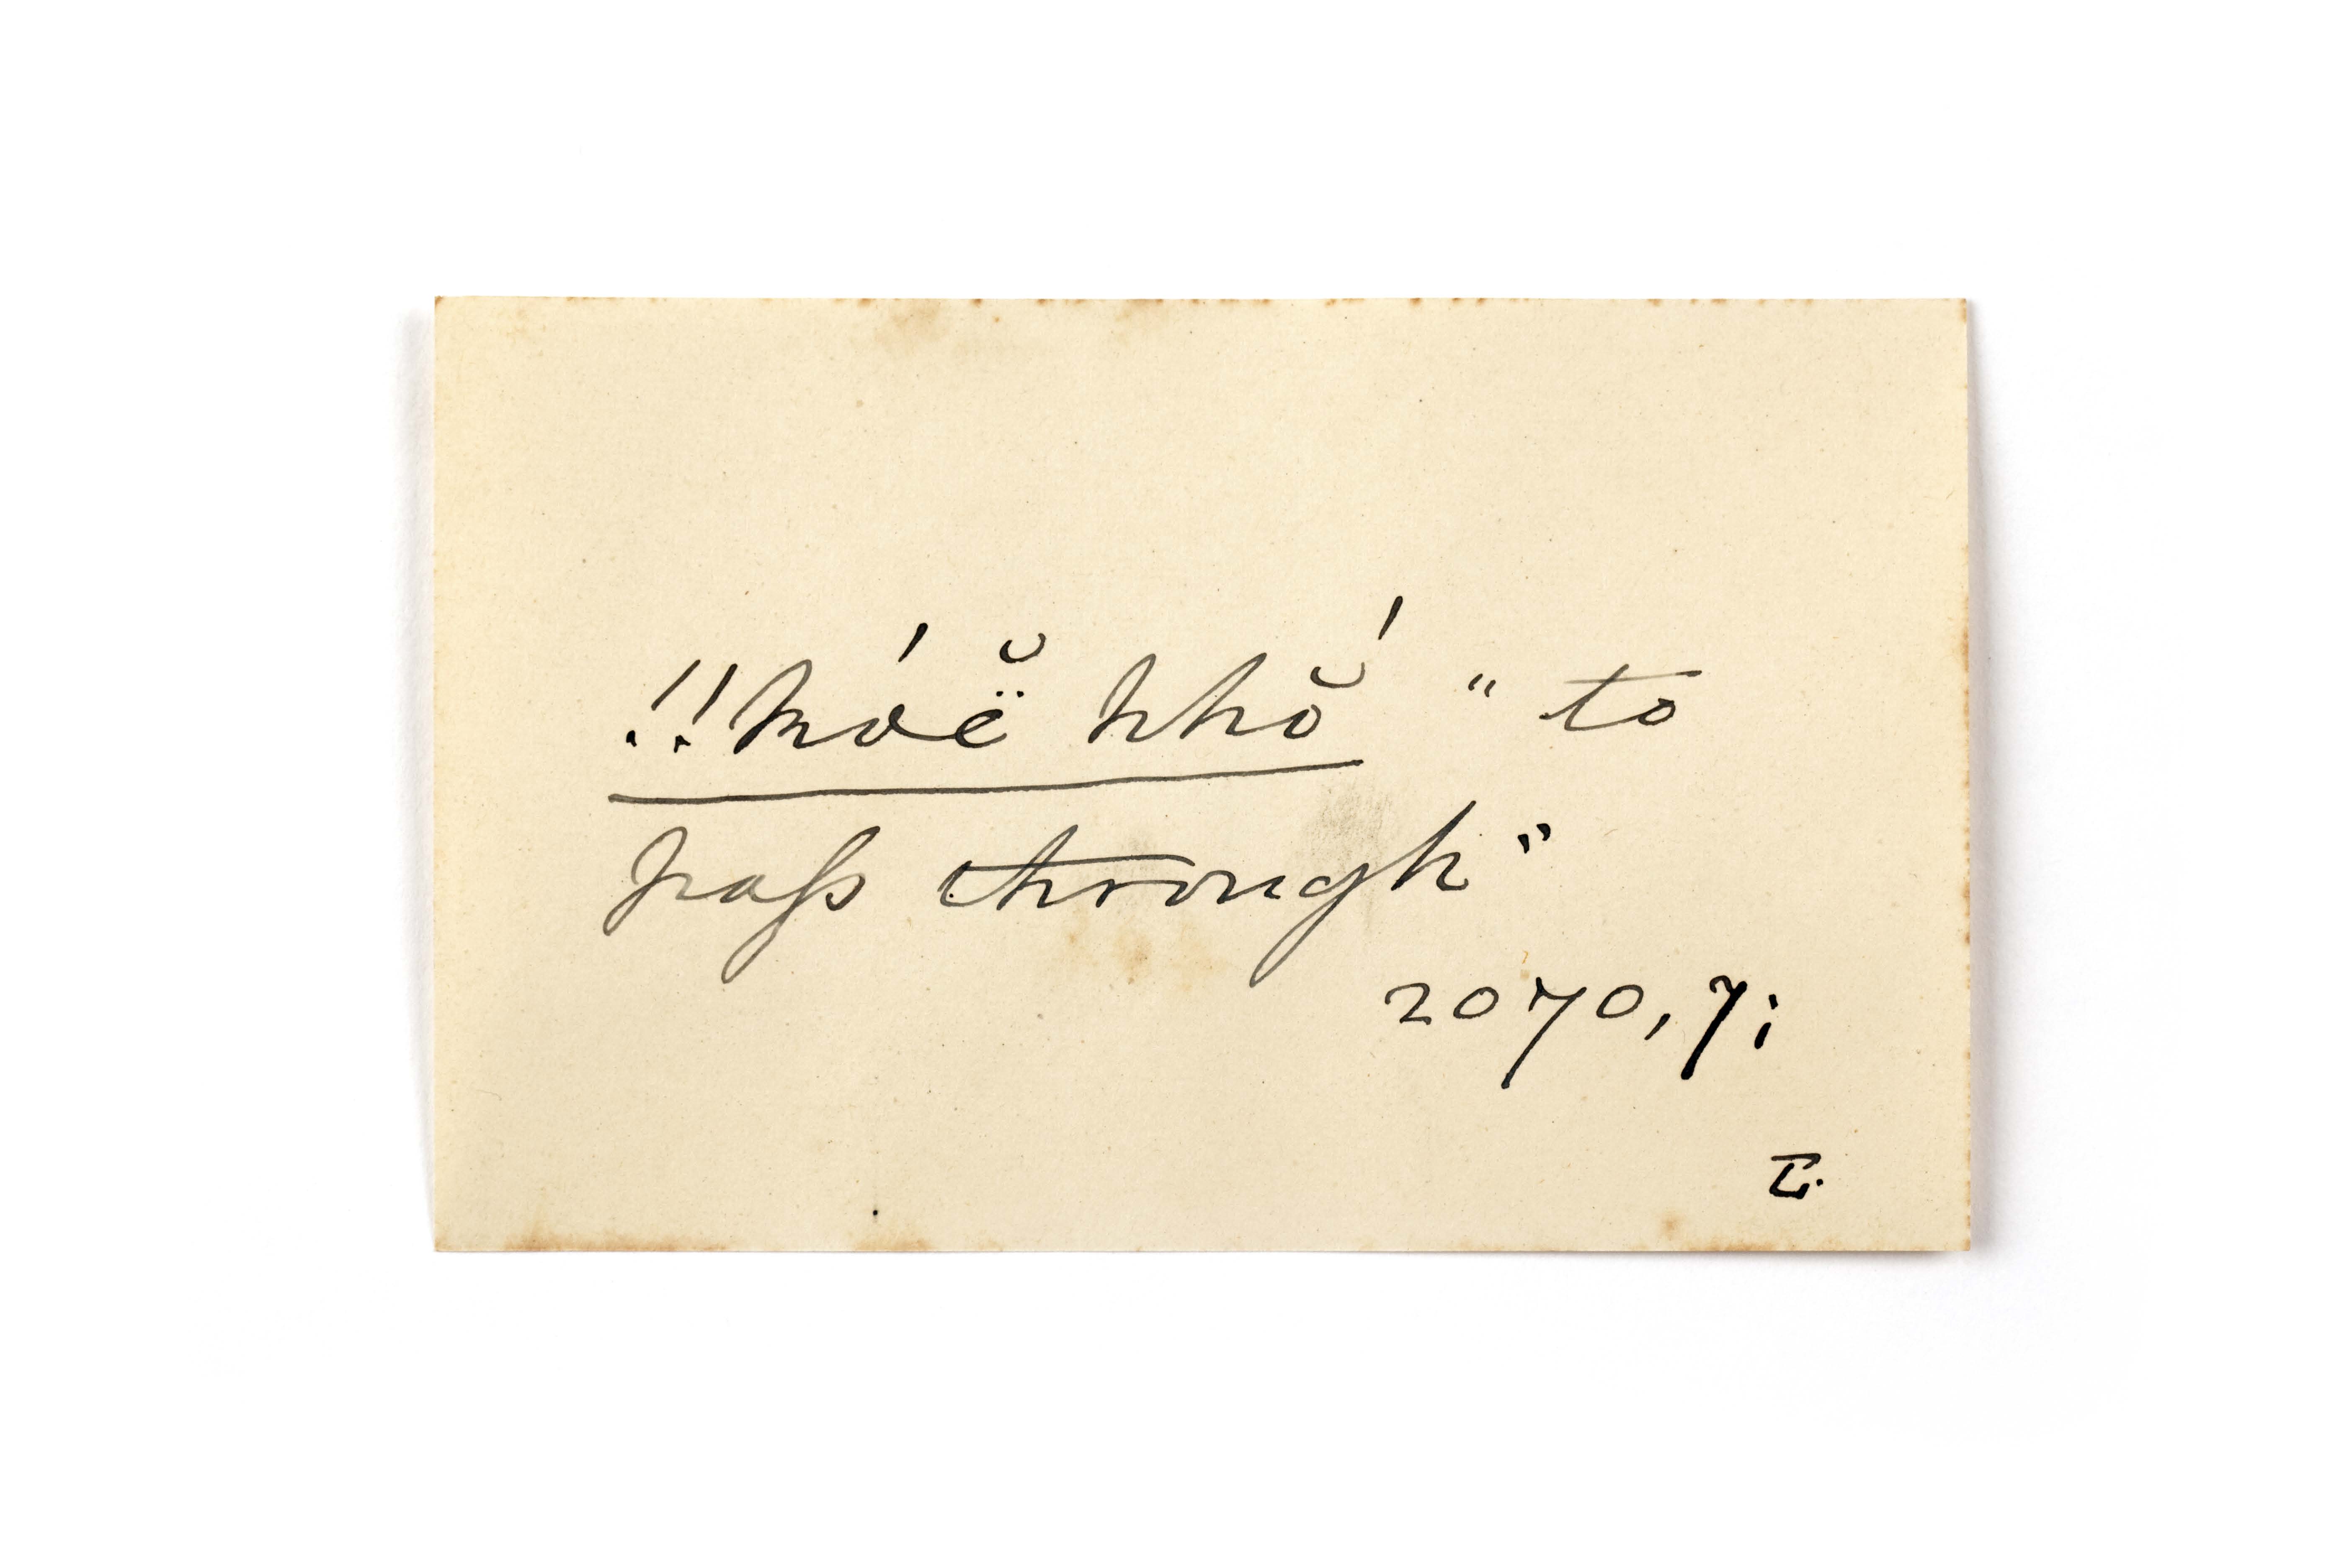 !!kóë̆ hhŏ́ " to
paſs through"
2070, 7;
L.